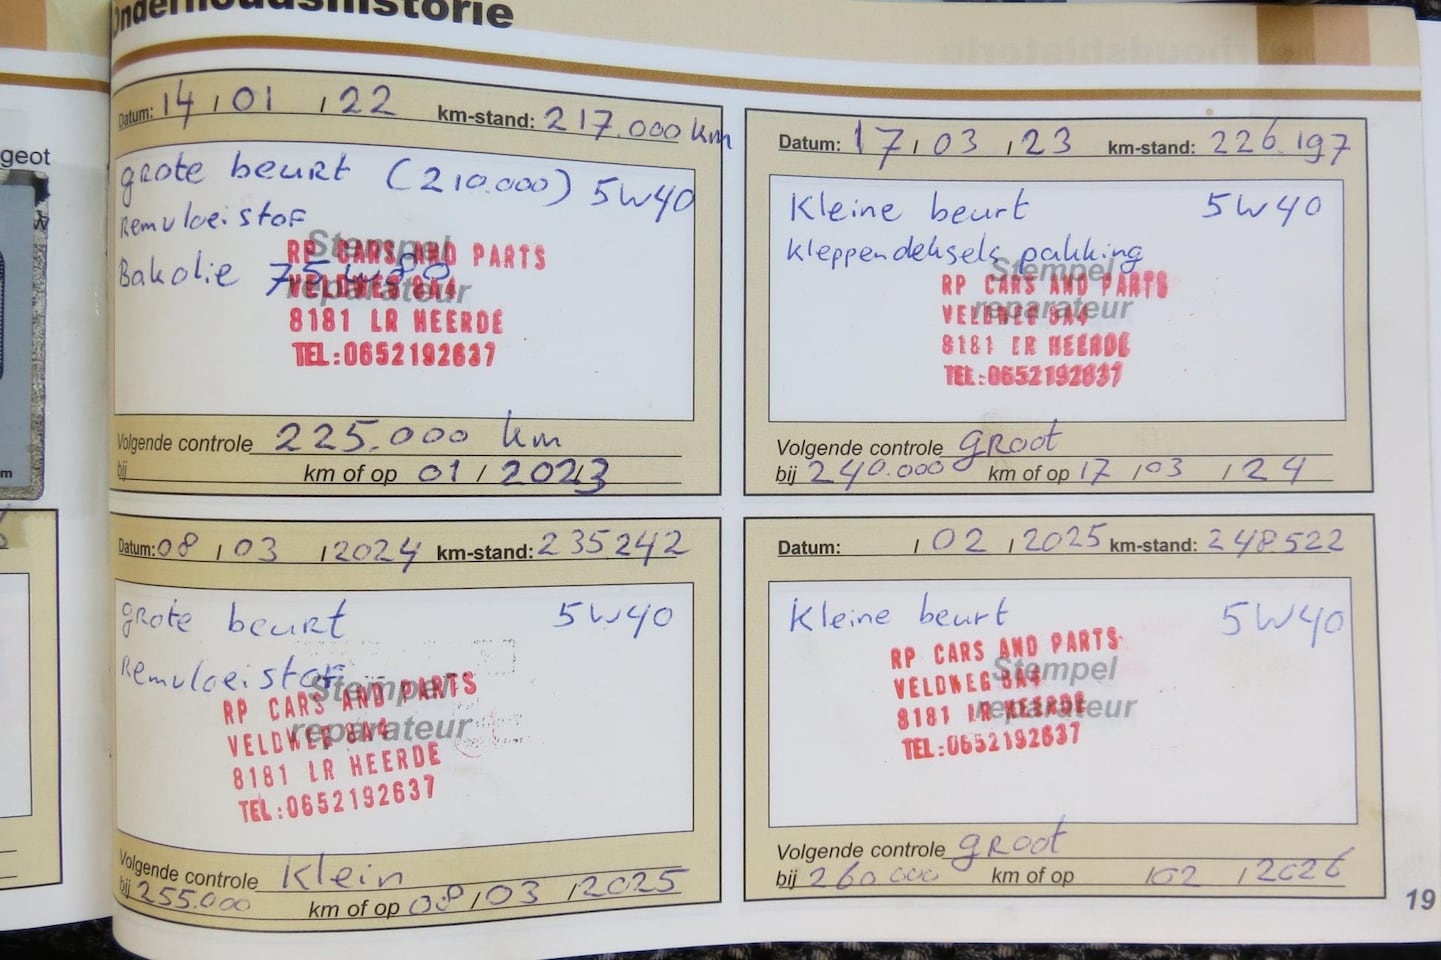 Onderhoudshistorie
geot
Datum: 14 / 01 / 22 km-stand: 217.000 km
grote beurt (210.000) 5W40
Remvloeistof
Bakolie 75W80
Stempel
reparateur
RP CARS AND PARTS
VELDWEG 8A4
8181 LR HEERDE
TEL:0652192637
Volgende controle 225.000 km
bij km of op 01 / 2023
Datum: 17 / 03 / 23 km-stand: 226.197
Kleine beurt 5W40
Kleppendeksels pakking
Stempel
reparateur
RP CARS AND PARTS
VELDWEG 8A4
8181 LR HEERDE
TEL:0652192637
Volgende controle groot
bij 240.000 km of op 17 / 03 / 24
Datum: 08 / 03 / 2024 km-stand: 235242
grote beurt 5W40
Remvloeistof
Stempel
reparateur
RP CARS AND PARTS
VELDWEG 8A4
8181 LR HEERDE
TEL:0652192637
Volgende controle Klein
bij 255.000 km of op 08 / 03 / 2025
Datum: / 02 / 2025 km-stand: 248522
Kleine beurt 5W40
Stempel
reparateur
RP CARS AND PARTS
VELDWEG 8A4
8181 LR HEERDE
TEL:0652192637
Volgende controle groot
bij 260.000 km of op / 02 / 2026
19